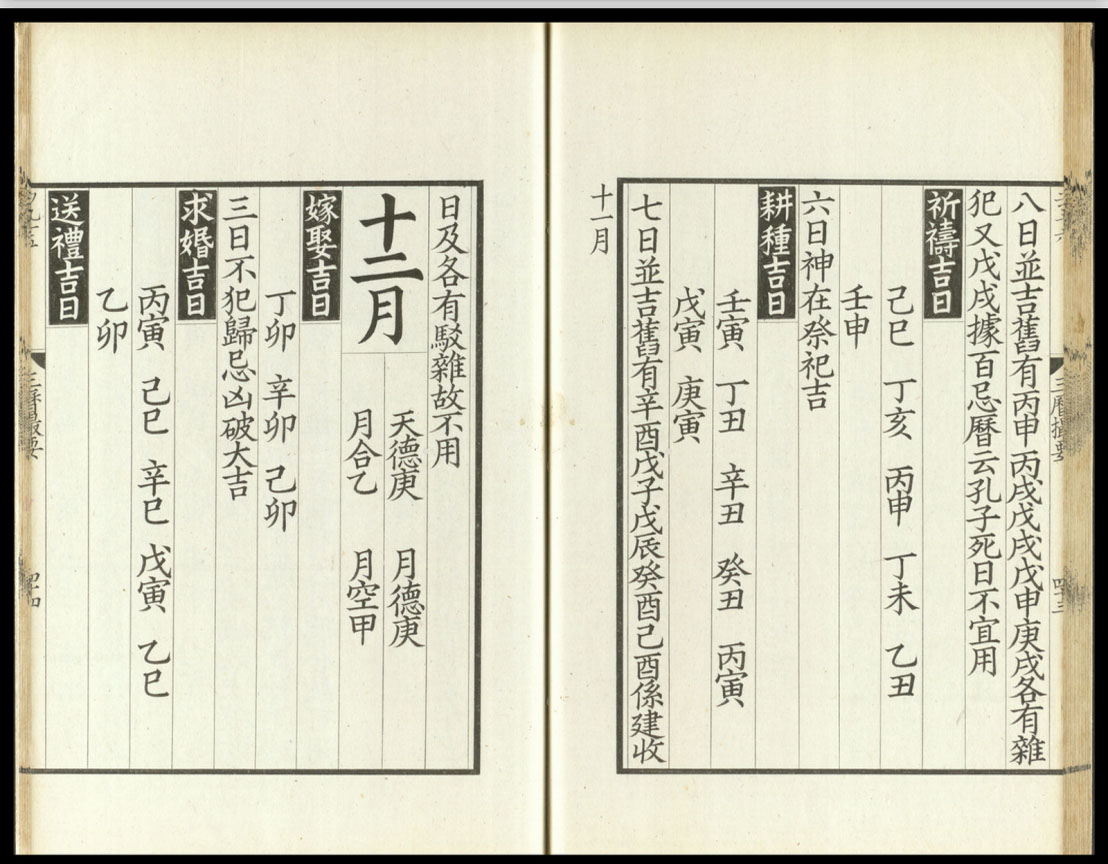 八日並吉舊有丙申丙戌戊戌戊申庚戌各有雜
犯又戊戌據百忌曆云孔子死日不宜用
祈禱吉日
己巳 丁亥 丙申 丁未 乙丑
壬申
六日神在祭祀吉
耕種吉日
壬寅 丁丑 辛丑 癸丑 丙寅
戊寅 庚寅
七日並吉舊有辛酉戊子戊辰癸酉己酉係建收
十一月
日及各有駁雜故不用
十二月
天德庚 月德庚
月合乙 月空甲
嫁娶吉日
丁卯 辛卯 己卯
三日不犯歸忌凶破大吉
求婚吉日
丙寅 己巳 辛巳 戊寅 乙巳
乙卯
送禮吉日